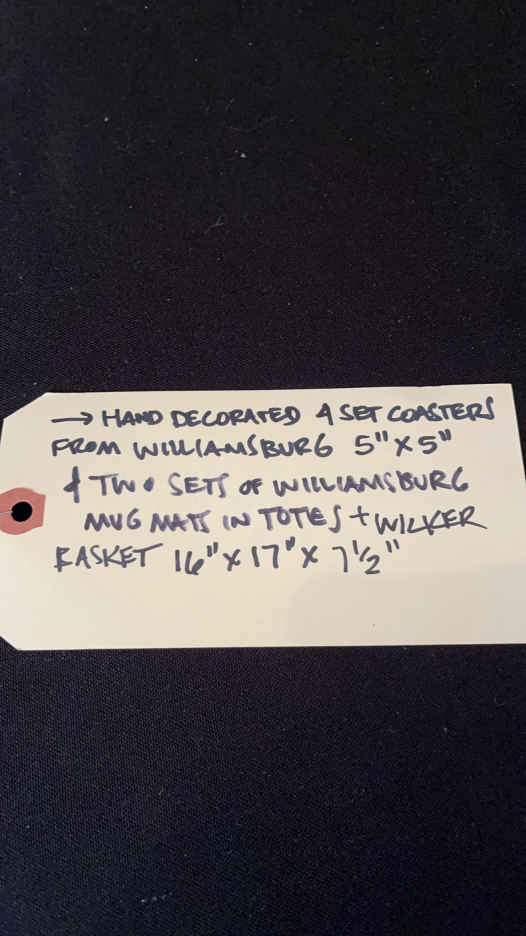 → HAND DECORATED 4 SET COASTERS
FROM WILLIAMSBURG 5"X5"
& TWO SETS OF WILLIAMSBURG
MUG MATS IN TOTES + WICKER
BASKET 16"X17"X 7½"